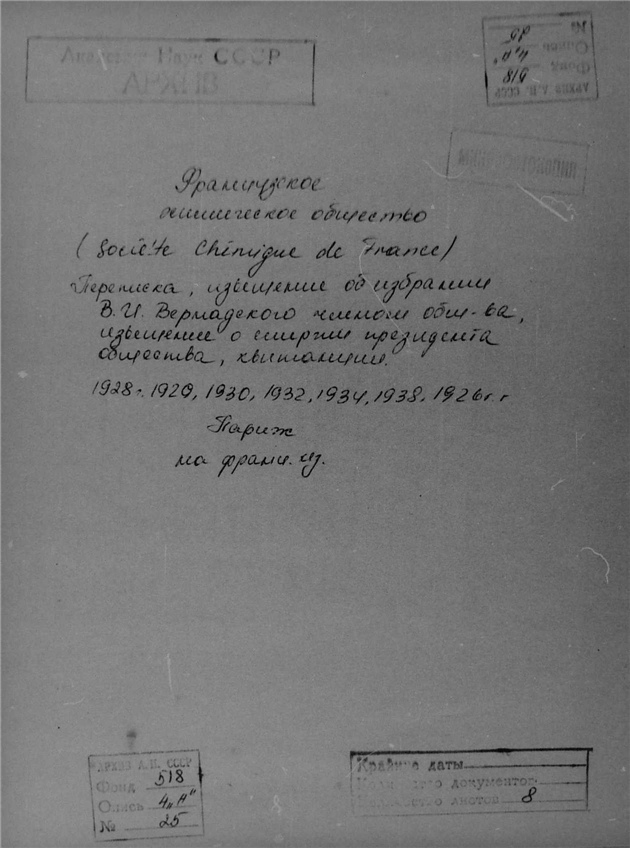 Академия Наук СССР
АРХИВ
№ 25
Опись 4„А"
Фонд 518
АРХИВ А.Н. СССР
Французское
химическое общество
(Société Chimique de France)
Переписка, извещение об избрании
В.И. Вернадского членом общ-ва,
извещение о смерти президента
общества, квитанции.
1928г. 1929, 1930, 1932, 1934, 1938, 1926г.г
Париж
на франц. яз.
АРХИВ А.Н. СССР
Фонд 518
Опись 4„А"
№ 25
Крайние даты
Количество документов
Количество листов 8